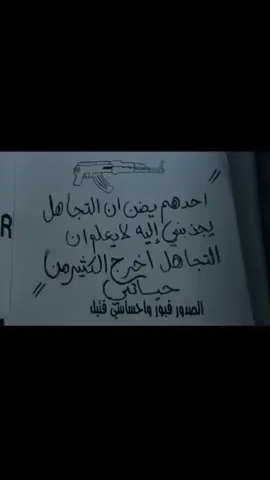 "احدهم يضن ان التجاهل
يجذبني إليه لايعلم ان
التجاهل اخرج الكثير من
حياتي"
الصدور قبور واحساسي قتيل
R